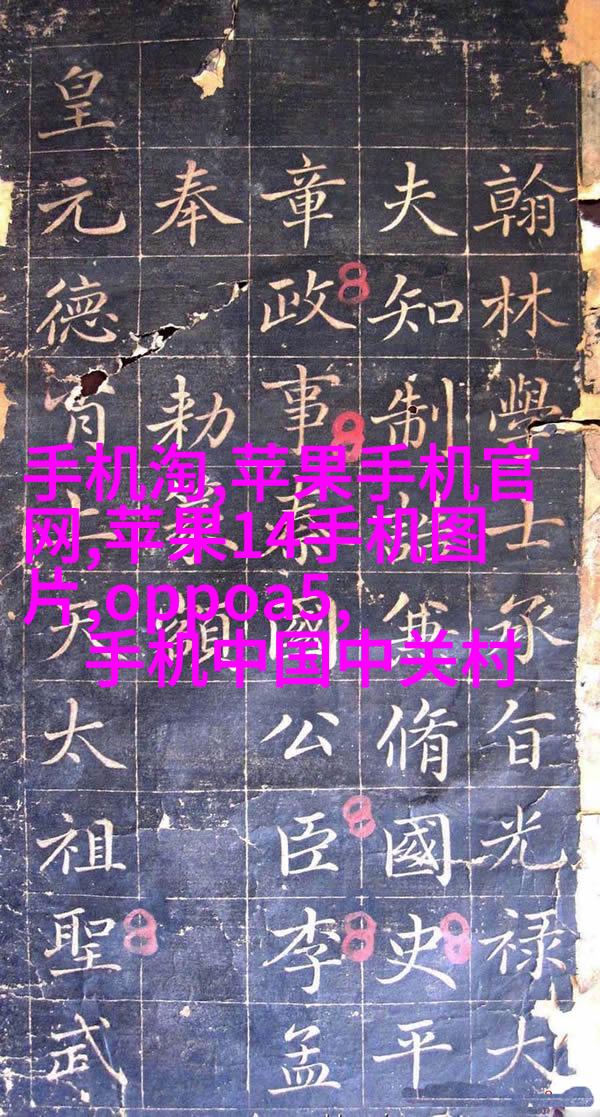 手机淘,苹果手机官
网,苹果14手机图
片,oppoa5,
手机中国中关村
翰林學士承旨光禄大
夫知制誥兼脩國史平
章政事秦國公臣李孟
奉勑額
皇元德天太祖聖武